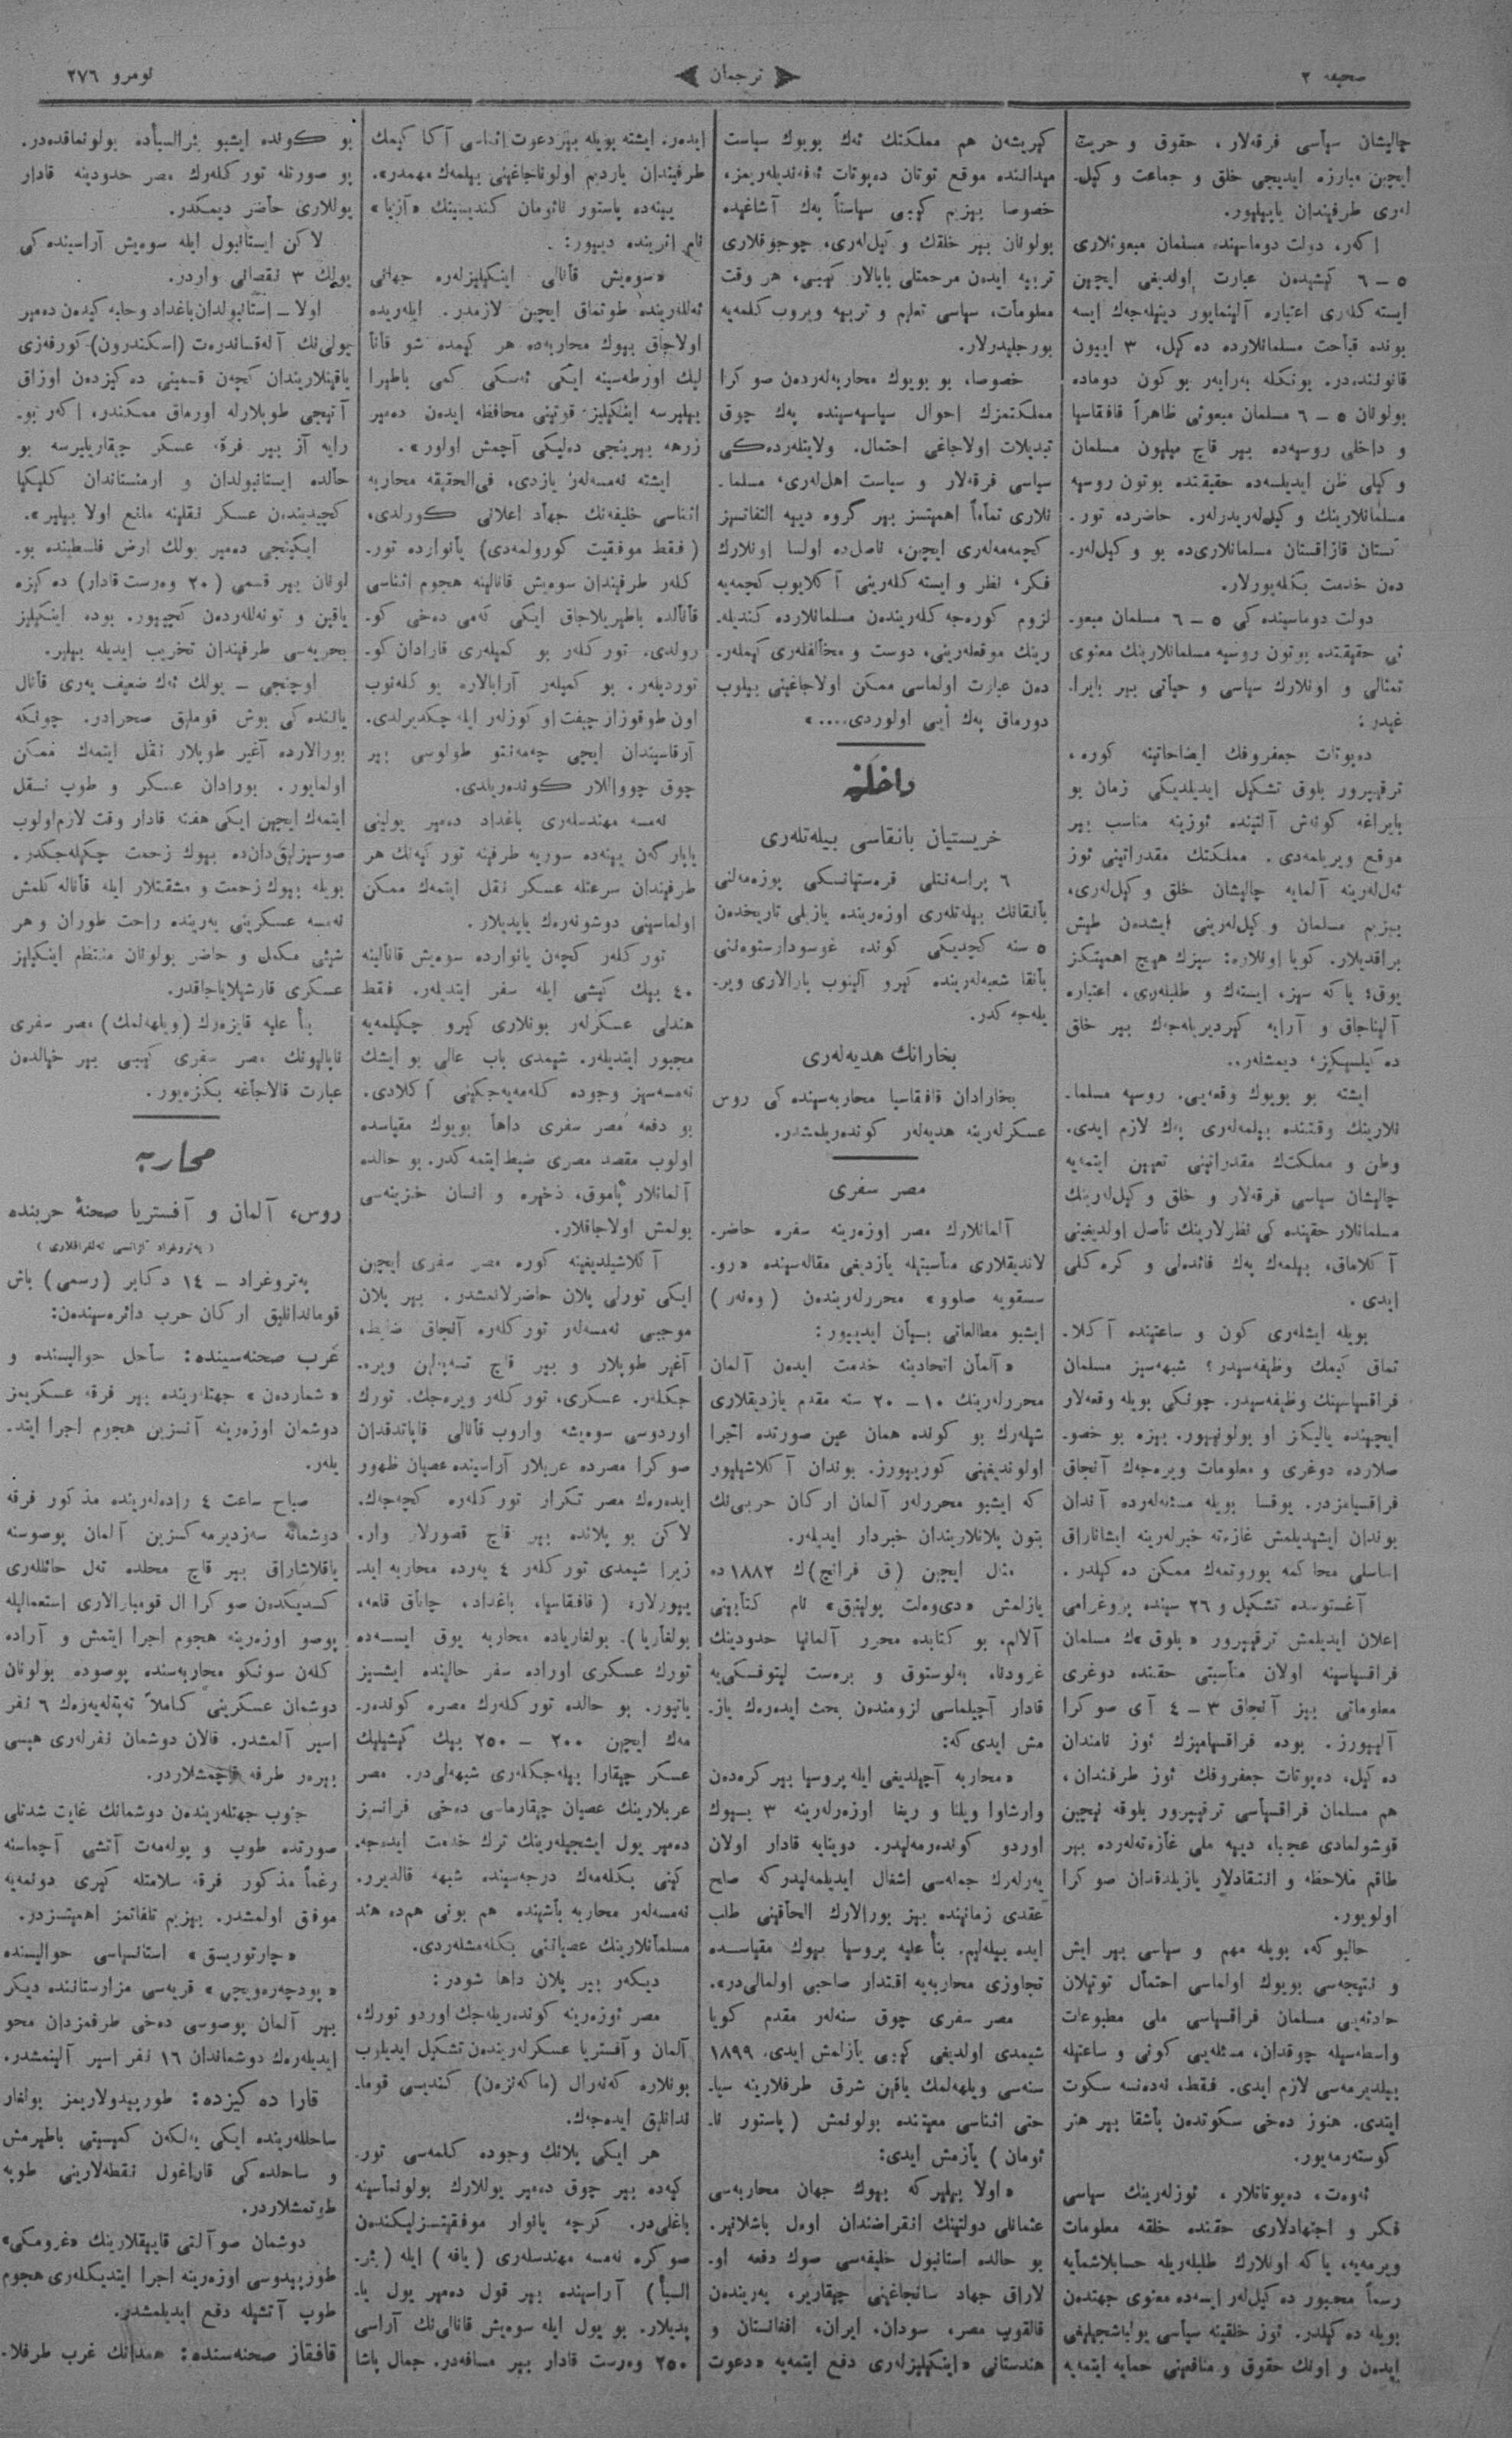 صحیفه ٢
ترجمان
نومرو ٢٧٦
چالیشان سیاسی فرقه‌لار، حقوق و حریت
ایچین مبارزه ایدیجی خلق و جماعت و کیل‌
لەری طرفیندان یاپیلیور.
اکەر، دولت دوماسینده مسلمان مبعوثلاری
٥ – ٦ کیشیدەن عبارت اولدیغی ایچین
ایسته کلەری اعتباره آلینمایور دینیلەجەك ایسه
بونده قباحت مسلمانلارده دەکیل، ٣ اییون
قانوننده‌در. بونکله بەرابەر بوکون دوماده
بولونان ٥ – ٦ مسلمان مبعوثی ظاهراً قافقاسیا
و داخلی روسیەده بیر قاچ میلیون مسلمان
وکیلی ظن ایدیلسەده حقیقتده بوتون روسیه
مسلمانلارینك وکیل‌لەریدرلەر. حاضرده تور‌
کستان قازاقستان مسلمانلاری‌ده بو وکیل‌لەر‌
دەن خدمت بکلەیورلار.
دولت دوماسینده کی ٥ – ٦ مسلمان مبعو‌
ثی حقیقتده بوتون روسیه مسلمانلارینك معنوی
تمثالی و اونلارك سیاسی و حیاتی بیر بایرا‌
غیدر:
دەپوتات جعفروفك ایضاحاتینه کوره،
ترقیپرور بلوق تشکیل ایدیلدیکی زمان بو
بایراغه کونەش آلتینده ئوزینه مناسب بیر
موقع ویریلمەدی. مملکتك مقدراتینی ئوز
ئەل‌لەرینه آلمایه چالیشان خلق وکیل‌لەری،
بیزیم مسلمان وکیل‌لەرینی ایشدەن طیش
براقدیلار. کویا اونلاره: سیزك هیچ اهمیتکز
یوق؛ یا که سیز، ایستەك و طلبلەری، اعتباره
آلیناجاق و آرایه کیردیریلەجەك بیر خلق
دەکیلسیکز، دیمشلەر..
ایشته بو بویوك وقعەیی، روسیه مسلما‌
نلارینك وقتنده بیلمەلەری پەك لازم ایدی.
وطن و مملکتك مقدراتینی تعیین ایتمەیه
چالیشان سیاسی فرقه‌لار و خلق وکیل‌لەرینك
مسلمانلار حقینده کی نظرلارینك نأصل اولدیغینی
آکلاماق، بیلمەك پەك فائدەلی و کرەکلی
ایدی.
بویله ایشلەری کون و ساعتینده آکلا‌
تماق کیمك وظیفەسیدر؟ شبهەسیز مسلمان
فراقسیاسینك وظیفەسیدر. چونکی بویله وقعه‌لار
ایچینده یالیکز او بولونییور. بیزه بو خصو‌
صلارده دوغری و معلومات ویرەجەك آنجاق
فراقسیامزدر. یوقسا بویله مسئلەلەرده آندان
بوندان ایشیدیلمش غازەته خبرلەرینه ایناناراق
اساسلی محاکمه یوروتمەك ممکن دەکیلدر.
آغستوسده تشکیل و ٢٦ سینده پروغرامی
اعلان ایدیلمش ترقیپرور «بلوق»ك مسلمان
فراقسیاسینه اولان مناسبتی حقنده دوغری
معلوماتی بیز آنجاق ٣ – ٤ آی صوکرا
آلییورز. بوده فراقسیامزك ئوز نامندان
دەکیل، دەپوتات جعفروفك ئوز طرفندان،
هم مسلمان فراقسیاسی ترقیپرور بلوقه نیچین
قوشولمادی عجبا، دییه ملی غازەتەلەرده بیر
طاقم ملاحظه و انتقادلار یازیلدقدان صوکرا
اولویور.
حالبوکه، بویله مهم و سیاسی بیر ایش
و نتیجەسی بویوك اولماسی احتمال توتیلان
حادثەیی مسلمان فراقسیاسی ملی مطبوعات
واسطەسیله چوقدان، مسئلەیی کونی و ساعتیله
بیلدیرمەسی لازم ایدی. فقط، نەدەنسه سکوت
ایتدی. هنوز دەخی سکوتدەن باشقا بیر هنر
کوستەرمەیور.
ئەوەت، دەپوتاتلار، ئوزلەرینك سیاسی
فکر و اجتهادلاری حقنده خلقه معلومات
ویرمەیه، یا که اونلارك طلبلەریله حسابلاشمایه
رسماً مجبور دەکیل‌لەر ایسەده معنوی جهتدەن
بویله دەکیلدر. ئوز خلقینه سیاسی یولباشچیلیغی
ایدەن و اونك حقوق و منافعینی حمایه ایتمەیه
کیریشەن هم مملکتك ئەك بویوك سیاست
میداننده موقع توتان دەپوتات ئەفەندیلەریمز،
خصوصا بیزیم کیبی سیاستاً پەك آشاغیده
بولونان بیر خلقك وکیل‌لەری، چوجوقلاری
تربیه ایدەن مرحمتلی بابالار کیبی، هر وقت
معلومات، سیاسی تعلیم و تربیه ویروب کلمەیه
بورجلیدرلار.
خصوصا، بو بویوك محاربەلەردەن صوکرا
مملکتمزك احوال سیاسیەسینده پەك چوق
تبدیلات اولاجاغی احتمال. ولایتلەردەکی
سیاسی فرقه‌لار و سیاست اهل‌لەری، مسلما‌
نلاری تماماً اهمیتسز بیر گروه دییه التفاتسز
کچمەمەلەری ایچین، نأصل‌ده اولسا اونلارك
فکر، نظر و ایسته کلەرینی آکلایوب کچمەیه
لزوم کورەجەکلەریندەن مسلمانلارده کندیلە‌
رینك موقعلەرینی، دوست و مخالفلەری کیملەر‌
دەن عبارت اولماسی ممکن اولاجاغینی بیلوب
دورماق پەك أیی اولوردی....»
داخلیه
خریستیان بانقاسی بیلەتلەری
٦ پراسەنتلی قرەستیانسکی پوزەمەلنی
بانقانك بیلەتلەری اوزەرینده یازیلی تاریخدەن
٥ سنه کچدیکی کونده غوسودارستوەننی
بانقا شعبەلەرینده کیرو آلینوب پارالاری ویر‌
یلەجەکدر.
بخارانك هدیەلەری
بخارادان قافقاسیا محاربەسینده کی روس
عسکرلەرینه هدیەلەر کوندەریلمشدر.
مصر سفری
آلمانلارك مصر اوزەرینه سفره حاضر‌
لاندیقلاری مناسبتیله یازدیغی مقالەسینده «رو‌
سسقویه صلوو» محررلەریندەن (وەنەر)
ایشبو مطالعاتی بیان ایدییور:
«آلمان اتحادینه خدمت ایدەن آلمان
محررلەرینك ١٠ – ٢٠ سنه مقدم یازدیقلاری
شیلەرك بو کونده همان عین صورتده اجرا
اولوندیغینی کورییورز. بوندان آکلاشیلیور
که ایشبو محررلەر آلمان ارکان حربی‌نك
بتون پلانلاریندان خبردار ایدیلەر.
مثال ایچین (ق فرانچ)ك ١٨٨٢ ده
یازلمش «دی‌وەلت پولیتیق» نام کتابینی
آلالم. بو کتابده محرر آلمانیا حدودینك
غرودنا، بەلوستوق و برەست لیتوفسکی‌یه
قادار آچیلماسی لزومندەن بحث ایدەرەك یاز‌
مش ایدی که:
«محاربه آچیلدیغی ایله پروسیا بیر کرەدەن
وارشاوا ویلنا و ریغا اوزەرلەرینه ٣ بیوك
اوردو کوندەرمەلیدر. دوینایه قادار اولان
یەرلەرك جملەسی اشغال ایدیلمەلیدرکه صلح
عقدی زمانینده بیز بورالارك الحاقینی طلب
ایده بیلەلیم. بنأ علیه پروسیا بیوك مقیاسده
تجاوزی محاربەیه اقتدار صاحبی اولمالی‌در».
مصر سفری چوق سنەلەر مقدم کویا
شیمدی اولدیغی کیبی یازلمش ایدی. ١٨٩٩
سنەسی ویلهەلمك یاقین شرق طرفلارینه سیا‌
حتی اثناسی معیتنده بولونمش (پاستور نا‌
ئومان) یازمش ایدی:
«اولا بیلیرکه بیوك جهان محاربەسی
عثمانلی دولتینك انقراضندان اوەل باشلانیر.
بو حالده استانبول خلیفەسی صوك دفعه او‌
لاراق جهاد سانجاغینی چیقاریر، یەریندەن
قالقوب مصر، سودان، ایران، افغانستان و
هندستانی «اینکیلیزلەری دفع ایتمەیه «دعوت
ایدەر. ایشته بویله بیر دعوت اثناسی آکا کیمك
طرفیندان یاردیم اولوناجاغینی بیلمەك مهمدر».
یینەده پاستور نائومان کندیسینك «آزیا»
نام اثرینده دییور:
«سوەیش قانالی اینکیلیزلەره جهانی
ئەللەرینده طوتماق ایچین لازمدر. ایلەریده
اولاجاق بیوك محاربەده هر کیمده شو قانا‌
لیك اورطەسینه ایکی ئەسکی کمی باطیرا
بیلیرسه اینکیلیز قوتینی محافظه ایدەن دەمیر
زرهه بیرینجی دەلیکی آچمش اولور».
ایشته نەمسەلەر یازدی، فی‌الحقیقه محاربه
اثناسی خلیفەنك جهاد اعلانی کورلدی،
(فقط موفقیت کورولمەدی) یأنوارده تور‌
کلەر طرفیندان سوەیش قانالینه هجوم اثناسی
قانالده باطیریلاجاق ایکی کەمی دەخی کو‌
رولدی. تورکلەر بو کمیلەری قارادان کو‌
توردیلەر. بو کمیلەر آرابالاره یوکلەنوب
اون طوقوزار چیفت اوکوزلەر ایله چکدیرلدی.
آرقاسیندان ایچی چەمەنتو طولوسی بیر
چوق چوواللار کوندەریلدی.
نەمسه مهندسلەری باغداد دەمیر یولینی
یاپارکەن یینەده سوریه طرفینه تورکیەنك هر
طرفیندان سرعتله عسکر نقل ایتمەك ممکن
اولماسینی دوشونەرەك یاپدیلار.
تورکلەر کچەن یانوارده سوەیش قانالینه
٤٠ بیك کیشی ایله سفر ایتدیلەر. فقط
هندلی عسکرلەر بونلاری کیرو چکیلمەیه
مجبور ایتدیلەر. شیمدی باب عالی بو ایشك
نەمسەسیز وجوده کلەمەیەجکینی آکلادی.
بو دفعه مصر سفری داها بویوك مقیاسده
اولوب مقصد مصری ضبط ایتمەکدر. بو حالده
آلمانلار پاموق، ذخیره و انسان خزینەسی
بولمش اولاجاقلار.
آکلاشیلدیغینه کوره مصر سفری ایچین
ایکی تورلی پلان حاضرلانمشدر. بیر پلان
موجبی نەمسەلەر تورکلەره آنجاق ضابط،
آغیر طوپلار و بیر قاچ تەیەلەن ویرە‌
جکلەر. عسکری، تورکلەر ویرەجك. تورك
اوردوسی سوەیشه واروب قانالی قاپاتدقدان
صوکرا مصرده عربلار آراسینده عصیان ظهور
ایدەرەك مصر تکرار تورکلەره کچەجەك.
لاکن بو پلانده بیر قاچ قصورلار وار.
زیرا شیمدی تورکلەر ٤ یەرده محاربه اید‌
ییورلار، (قافقاسیا، باغداد، چاناق قلعه،
بولغاریا). بولغاریاده محاربه یوق ایسەده
تورك عسکری اوراده سفر حالینده ایشسیز
یاتیور. بو حالده تورکلەرك مصره کوندەر‌
مەك ایچین ٢٠٠ – ٢٥٠ بیك کیشیلیك
عسکر چیقارا بیلەجکلەری شبهەلی‌در. مصر
عربلارینك عصیان چیقارماسی دەخی فرانسز
دەمیر یول ایشچیلەرینك ترك خدمت ایدەجە‌
کینی بکلەمەك درجەسینده شبهه قالدیرر.
نەمسەلەر محاربه باشینده هم بونی هم‌ده هند
مسلمانلارینك عصیانینی بکلەمشلەردی.
دیکەر بیر پلان داها شودر:
مصر ئوزەرینه کوندەریلەجك اوردو تورك،
آلمان و آفستریا عسکرلەریندەن تشکیل ایدیلوب
بونلاره کەنەرال (ماکەنزەن) کندیسی قوما‌
ندانلیق ایدەجەك.
هر ایکی پلانك وجوده کلمەسی تور‌
کیەده بیر چوق دەمیر یوللارك بولونماسینه
باغلی‌در. کرچه یانوار موفقیتسزلیکندەن
صوکره نەمسه مهندسلەری (یافه) ایله (بئر‌
السبأ) آراسینده بیر قول دەمیر یول یا‌
پدیلار. بو یول ایله سوەیش قانالی‌نك آراسی
٢٥٠ وەرست قادار بیر مسافەدر. جمال پاشا
بو کونده ایشبو بئرالسبأده بولونماقدەدر.
بو صورتله تورکلەرك مصر حدودینه قادار
یوللاری حاضر دیمکدر.
لاکن ایستانبول ایله سوەیش آراسینده کی
یولك ٣ نقصانی واردر.
اولا – استانبولدان باغداد و حلبه کیدەن دەمیر
یولی‌نك آلەقساندرەت (اسکندرون) کورفەزی
یاقینلاریندان کچەن قسمینی دەکیزدەن اوزاق
آتیجی طوپلارله اورماق ممکندر، اکەر بو‌
رایه آز بیر فرقه عسکر چیقاریلیرسه بو
حالده ایستانبولدان و ارمنستاندان کلیکیا
کچیدیندەن عسکر نقلینه مانع اولا بیلیر».
ایکینجی دەمیر یولك ارض فلسطینده بو‌
لونان بیر قسمی (٢٠ وەرست قادار) دەکیزه
یاقین و تونەللەردەن کچییور. بوده اینکیلیز
بحریەسی طرفیندان تخریب ایدیله بیلیر.
اوچنجی – یولك ئەك ضعیف یەری قانال
یاننده کی بوش قوملق صحرادر. چونکه
بورالارده آغیر طوپلار نقل ایتمەك ممکن
اولمایور. بورادان عسکر و طوپ نقل
ایتمەك ایچین ایکی هفته قادار وقت لازم اولوب
صوسیزلیق‌دان‌ده بیوك زحمت چکیلەجکدر.
بویله بیوك زحمت و مشقتلار ایله قاناله کلمش
نەمسه عسکرینی یەرینده راحت طوران و هر
شیئی مکمل و حاضر بولونان منتظم اینکیلیز
عسکری قارشیلایاجاقدر.
بنأ علیه قایزەرك (ویلهەلمك) مصر سفری
ناپالیونك مصر سفری کیبی بیر خیالدەن
عبارت قالاجاغه بکزەیور.
محاربه
روس، آلمان و آفستریا صحنهٔ حربنده
(پەتروغراد آژانسی تەلغرافلاری)
پەتروغراد – ١٤ دکابر (رسمی) باش
قوماندانلیق ارکان حرب دائرەسیندەن:
غرب صحنەسینده: ساحل حوالیسنده و
«شماردەن» جهتلەرینده بیر فرقه عسکریمز
دوشمان اوزەرینه آنسزین هجوم اجرا ایتد‌
یلەر.
صباح ساعت ٤ رادەلەرینده مذکور فرقه
دوشمانه سەزدیرمەکسزین آلمان پوصوسنه
یاقلاشاراق بیر قاچ محلده تەل حائللەری
کسدیکدەن صوکرا ال قومبارالاری استعمالیله
پوصو اوزەرینه هجوم اجرا ایتمش و آراده
کلەن سونکو محاربەسنده پوصوده بولونان
دوشمان عسکرینی کاملاً تەپەلەیەرەك ٦ نفر
اسیر آلمشدر. قالان دوشمان نفرلەری هپسی
بیرەر طرفه قاچمشلاردر.
جنوب جهتلەریندەن دوشمانك غایت شدتلی
صورتده طوپ و پولەمەت آتشی آچماسنه
رغماً مذکور فرقه سلامتله کیری دونمەیه
موفق اولمشدر. بیزیم تلفاتمز اهمیتسزدر.
«چارتوریسق» استانسیاسی حوالیسنده
«پودچەرەویچی» قریەسی مزارستاننده دیکر
بیر آلمان پوصوسی دەخی طرفمزدان محو
ایدیلەرەك دوشماندان ١٦ نفر اسیر آلینمشدر.
قارا دەکیزده: طورپیدولاریمز بولغار
ساحللەرینده ایکی یەلکەن کمیسینی باطیرمش
و ساحلده کی قاراغول نقطەلارینی طوپه
طوتمشلاردر.
دوشمان صو آلتی قاییقلارینك «غرومکی»
طورپیدوسی اوزەرینه اجرا ایتدیکلەری هجوم
طوپ آتشیله دفع ایدیلمشدر.
قافقاز صحنەسنده: همدانك غرب طرفلا‌